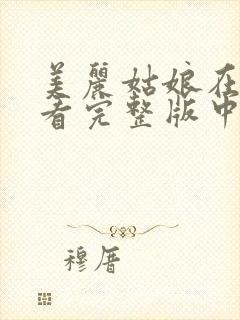 美麗姑娘在
看完整版中
穆厝